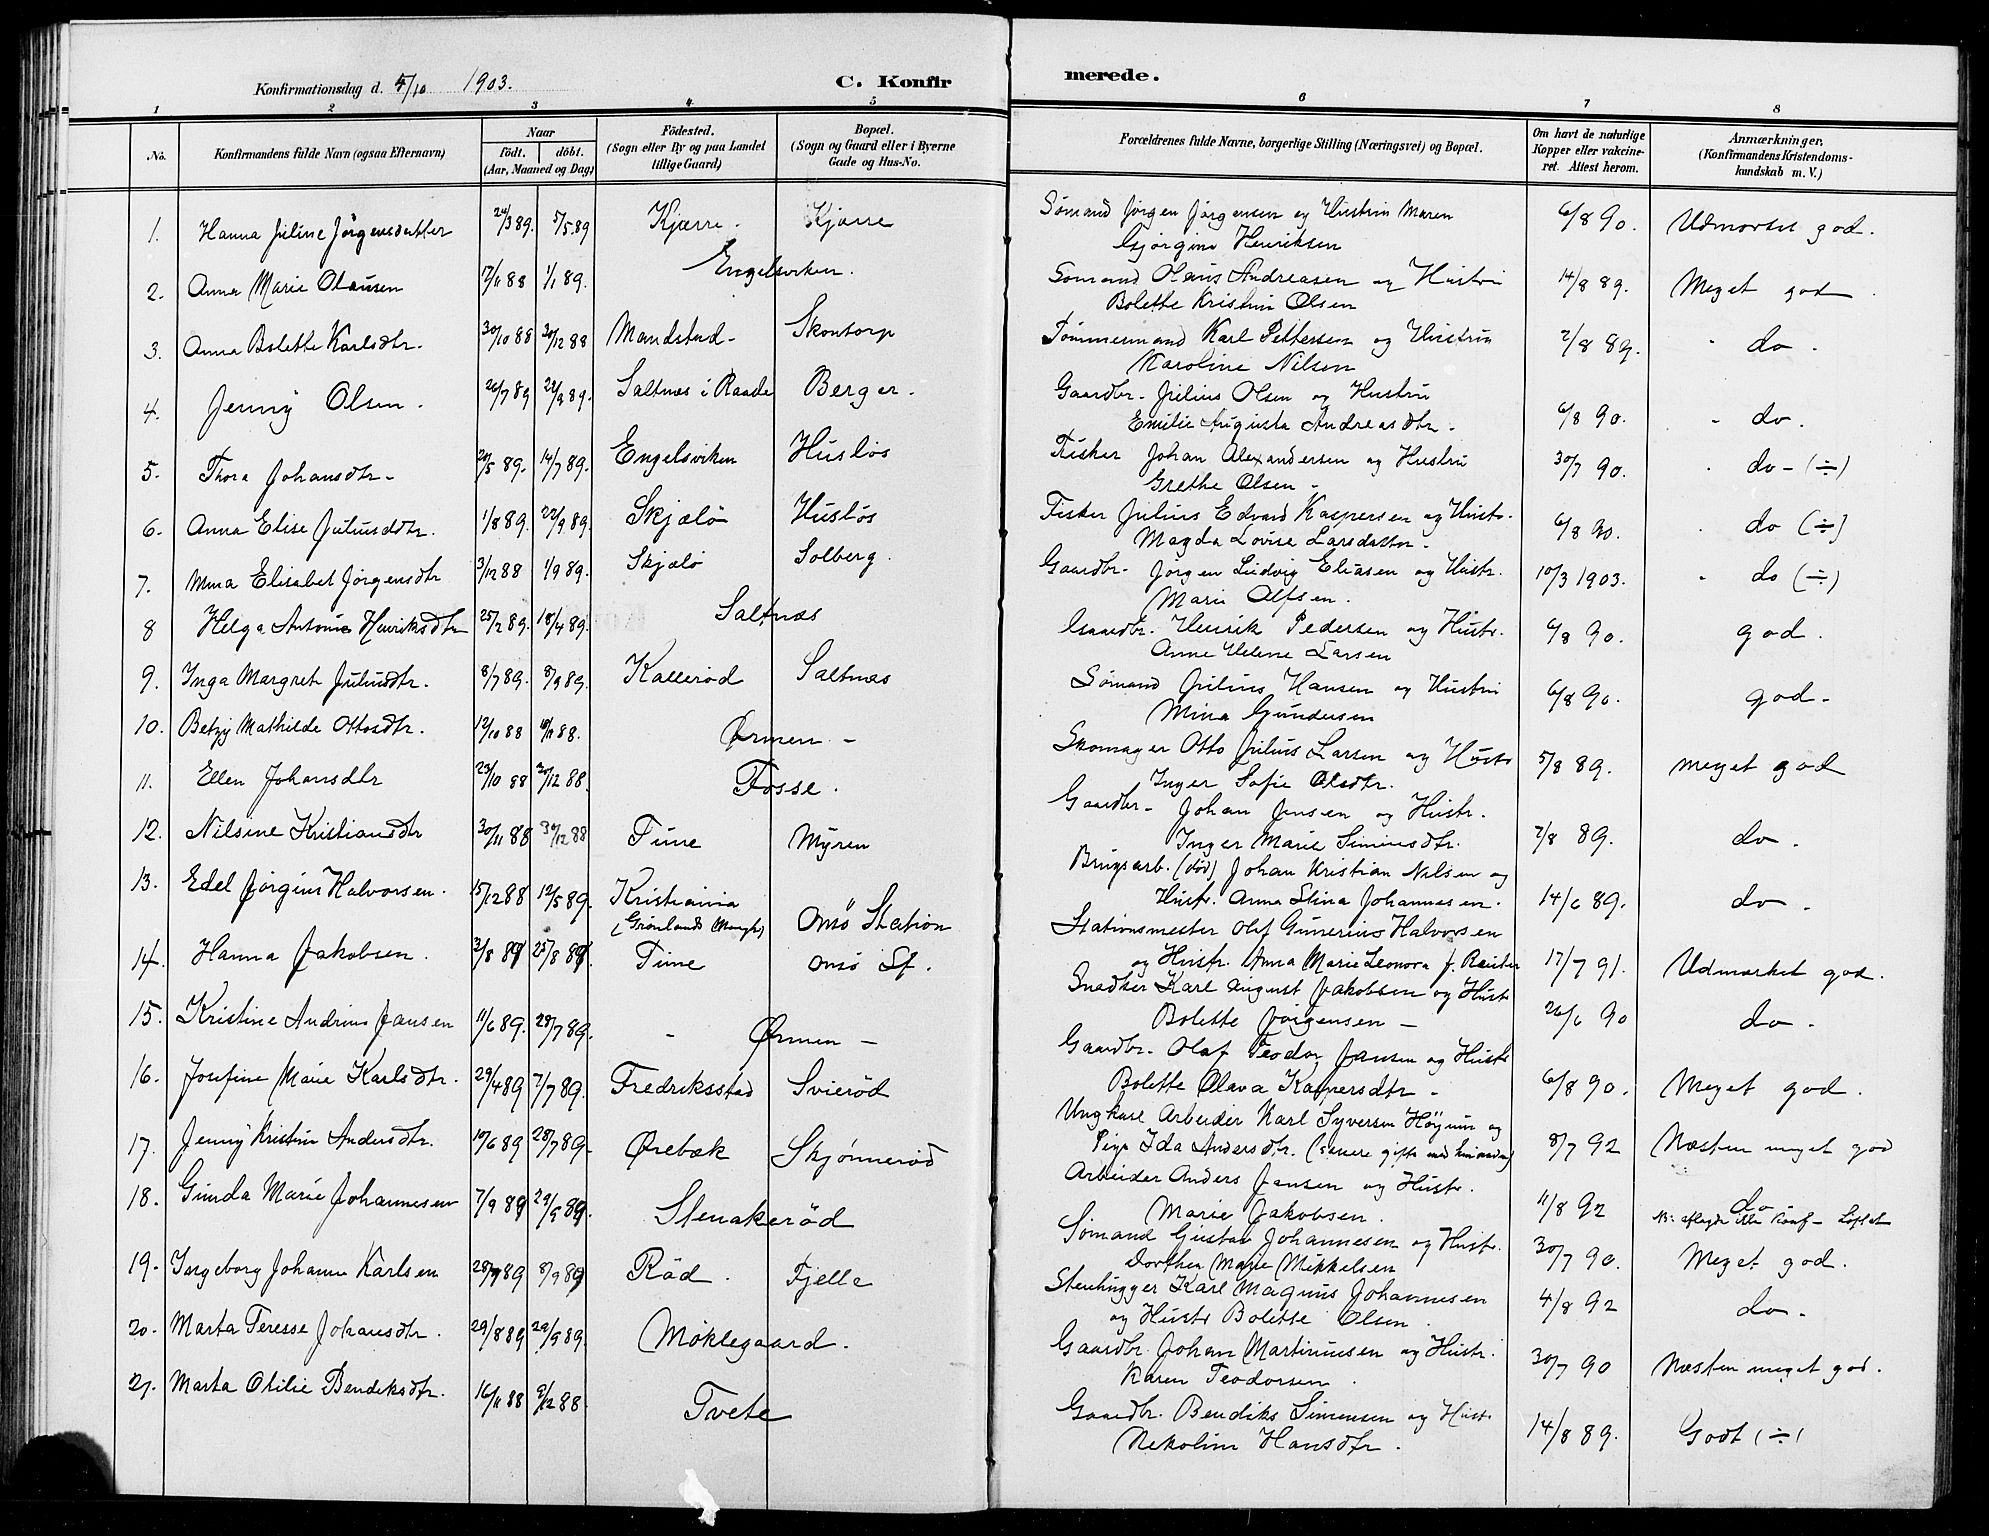 Konfirmationsdag d. 4/10 1903.
C. Konfir
merede.
1 2 3 4 5 6 7 8
No.
Konfirmandens fulde Navn (ogsaa Efternavn)
Naar
födt. döbt.
(Aar, Maaned og Dag)
Födested.
(Sogn eller By og paa Landet
tillige Gaard)
Bopæl.
(Sogn og Gaard eller i Byerne
Gade og Hus-No.
Forældrenes fulde Navne, borgerlige Stilling (Næringsvei) og Bopæl.
Om havt de naturlige
Kopper eller vakcine-
ret. Attest herom.
Anmærkninger.
(Konfirmandens Kristendoms-
kundskab m. V.)
1. Hanna Juline Jörgensdatter 24/3 89. 5/5 89 Kjærre. Kjærre Sømand Jörgen Jörgensen og Hustru Maren 6/8 90. Udmærket god.
Gjørgine Henriksen
2. Anna Marie Olausen 17/11 88 1/1 89. Engelsviken. Sømand Olaus Andreasen og Hustru 14/8 89. Meget god.
Bolette Kristine Olsen
3. Anna Bolette Karlsdtr. 30/10 88 30/12 88 Mandstad Skontorp Tømmermand Karl Pettersen og Hustru 2/8 89. do.
Karoline Nilsen
4. Jenny Olsen. 26/7 89 22/9 89. Saltnæs i Raade Berger. Gaardbr. Julius Olsen og Hustru 6/8 90. do.
Emilie Augusta Andreasdtr.
5. Thora Johansdtr. 20/5 89. 14/7 89. Engelsviken Husløs Fisker Johan Alexandersen og Hustru 30/7 90. do - (÷)
Grethe Olsen -
6. Anna Elise Juliusdtr. 1/8 89. 22/9 89. Skjælø Husløs Fisker Julius Edvard Kaspersen og Hustr. 6/8 90. do (÷)
Magda Lovise Larsdatter.
7. Mina Elisabet Jörgensdtr 3/12 88 1/9 89. Skjælø Solberg. Gaardbr. Jörgen Ludvig Eliasen og Hustr. 10/3 1903. do (÷)
Marie Alfsen.
8 Helga Antonie Henriksdtr 25/2 89. 18/4 89. Saltnæs Gaardbr. Henrik Pedersen og Hustr. 6/8 90. god.
Anne Helene Larsen
9. Inga Margrete Juliusdtr. 8/7 89. 8/9 89. Kallerød Saltnæs Sømand Julius Hansen og Hustru 6/8 90. god.
Mina Gundersen
10. Betzy Mathilde Ottosdtr. 12/10 88 18/11 88. Ørmen - Skomager Otto Julius Larsen og Hustr 5/8 89. meget god
Inger Sofie Olsdtr.
11. Ellen Johansdtr 23/10 88 30/12 88. Fosse. Gaardbr. Johan Jensen og Hustr. 2/8 89. do.
Inger Marie Simensdtr.
12. Nilsine Kristiansdtr 30/11 88 30/12 88 Tune Myren Brugsarb. (död) Johan Kristian Nilsen og 14/6 89. do.
Hustr. Anna Stina Johannesen.
13. Edel Jørgine Halvorsen. 15/12 88 12/5 89. Kristiania
(Grønlands Mengh) Onsö Station Stationsmester Olaf Gunerius Halvorsen
og Hustr. Anna Marie Leonora f. Reuter 17/7 91. Udmærket god.
14. Hanna Jakobsen. 3/8 89 25/8 89. Tune Onsö St. Snedker Karl August Jakobsen og Hustr 26/6 90 do.
Bolette Jörgensen -
15. Kristine Andrine Jansen 11/6 89. 28/7 89. Ørmen - Gaardbr. Olaf Teodor Jansen og Hustr 6/8 90. Meget god.
Bolette Olava Kaspersdtr -
16. Josefine Marie Karlsdtr. 29/4 89 7/7 89. Fredriksstad Svierød Ungkarl Arbeider Karl Syversen Höyum og 8/7 92 Næsten meget god
Pige Ida Andersdtr. (senere gifte med hinanden)
17. Jenny Kristine Andersdtr. 10/6 89 28/7 89. Ørebæk Skjønnerød Arbeider Anders Jansen og Hustr. 11/8 92 do
Marie Jakobsen. NB: aflagde ikke Konf. Löftet
18. Gunda Marie Johannesen 7/9 89 29/9 89 Stenakerød Sømand Gustav Johannesen og Hustr. 30/7 90. Meget god.
Dorthea Marie Mikkelsen
19. Ingeborg Johanne Karlsen 28/7 89 8/9 89 Rød. Fjelle Stenhugger Karl Magnus Johannesen 4/8 92 do.
og Hustr Bolette Olsen.
20. Marta Teresse Johansdtr. 29/8 89 29/9 89. Møklegaard. Gaardbr. Johan Martiniusen og Hustr. 30/7 90 Næsten meget god.
Karen Teodorsen.
21. Marta Otilie Bendiksdtr. 16/11 88 9/12 88. Tvete Gaardbr. Bendiks Simensen og Hustr 14/8 89. Godt (÷)
Nekoline Hansdtr.